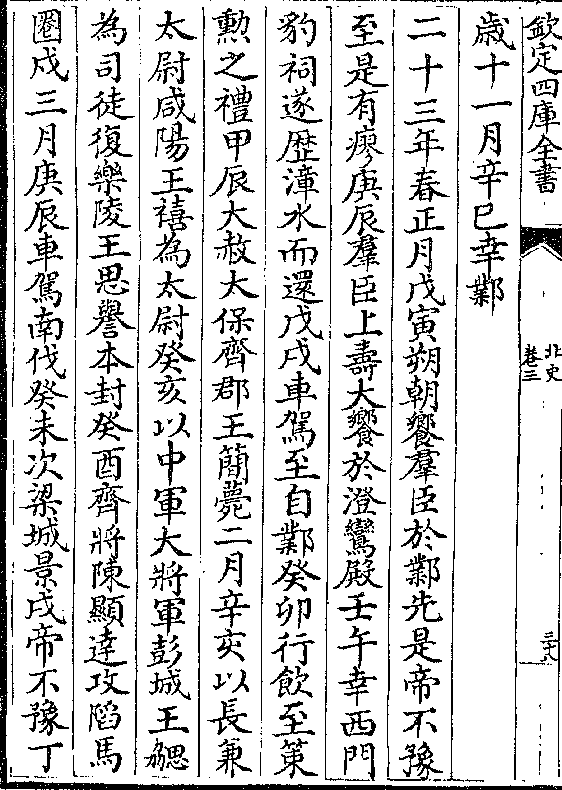 欽定四庫全書
北史
卷三
三十八
歲十一月辛巳幸鄴
二十三年春正月戊寅朔朝饗羣臣於鄴先是帝不豫
至是有瘳庚辰羣臣上壽大饗於澄鸞殿壬午幸西門
豹祠遂歴漳水而還戊戌車駕至自鄴癸卯行飲至策
勲之禮甲辰大赦太保齊郡王簡薨二月辛亥以長兼
太尉咸陽王禧為太尉癸亥以中軍大將軍彭城王勰
為司徒復樂陵王思譽本封癸酉齊將陳顯達攻䧟馬
圈戍三月庚辰車駕南伐癸未次梁城景戌帝不豫丁